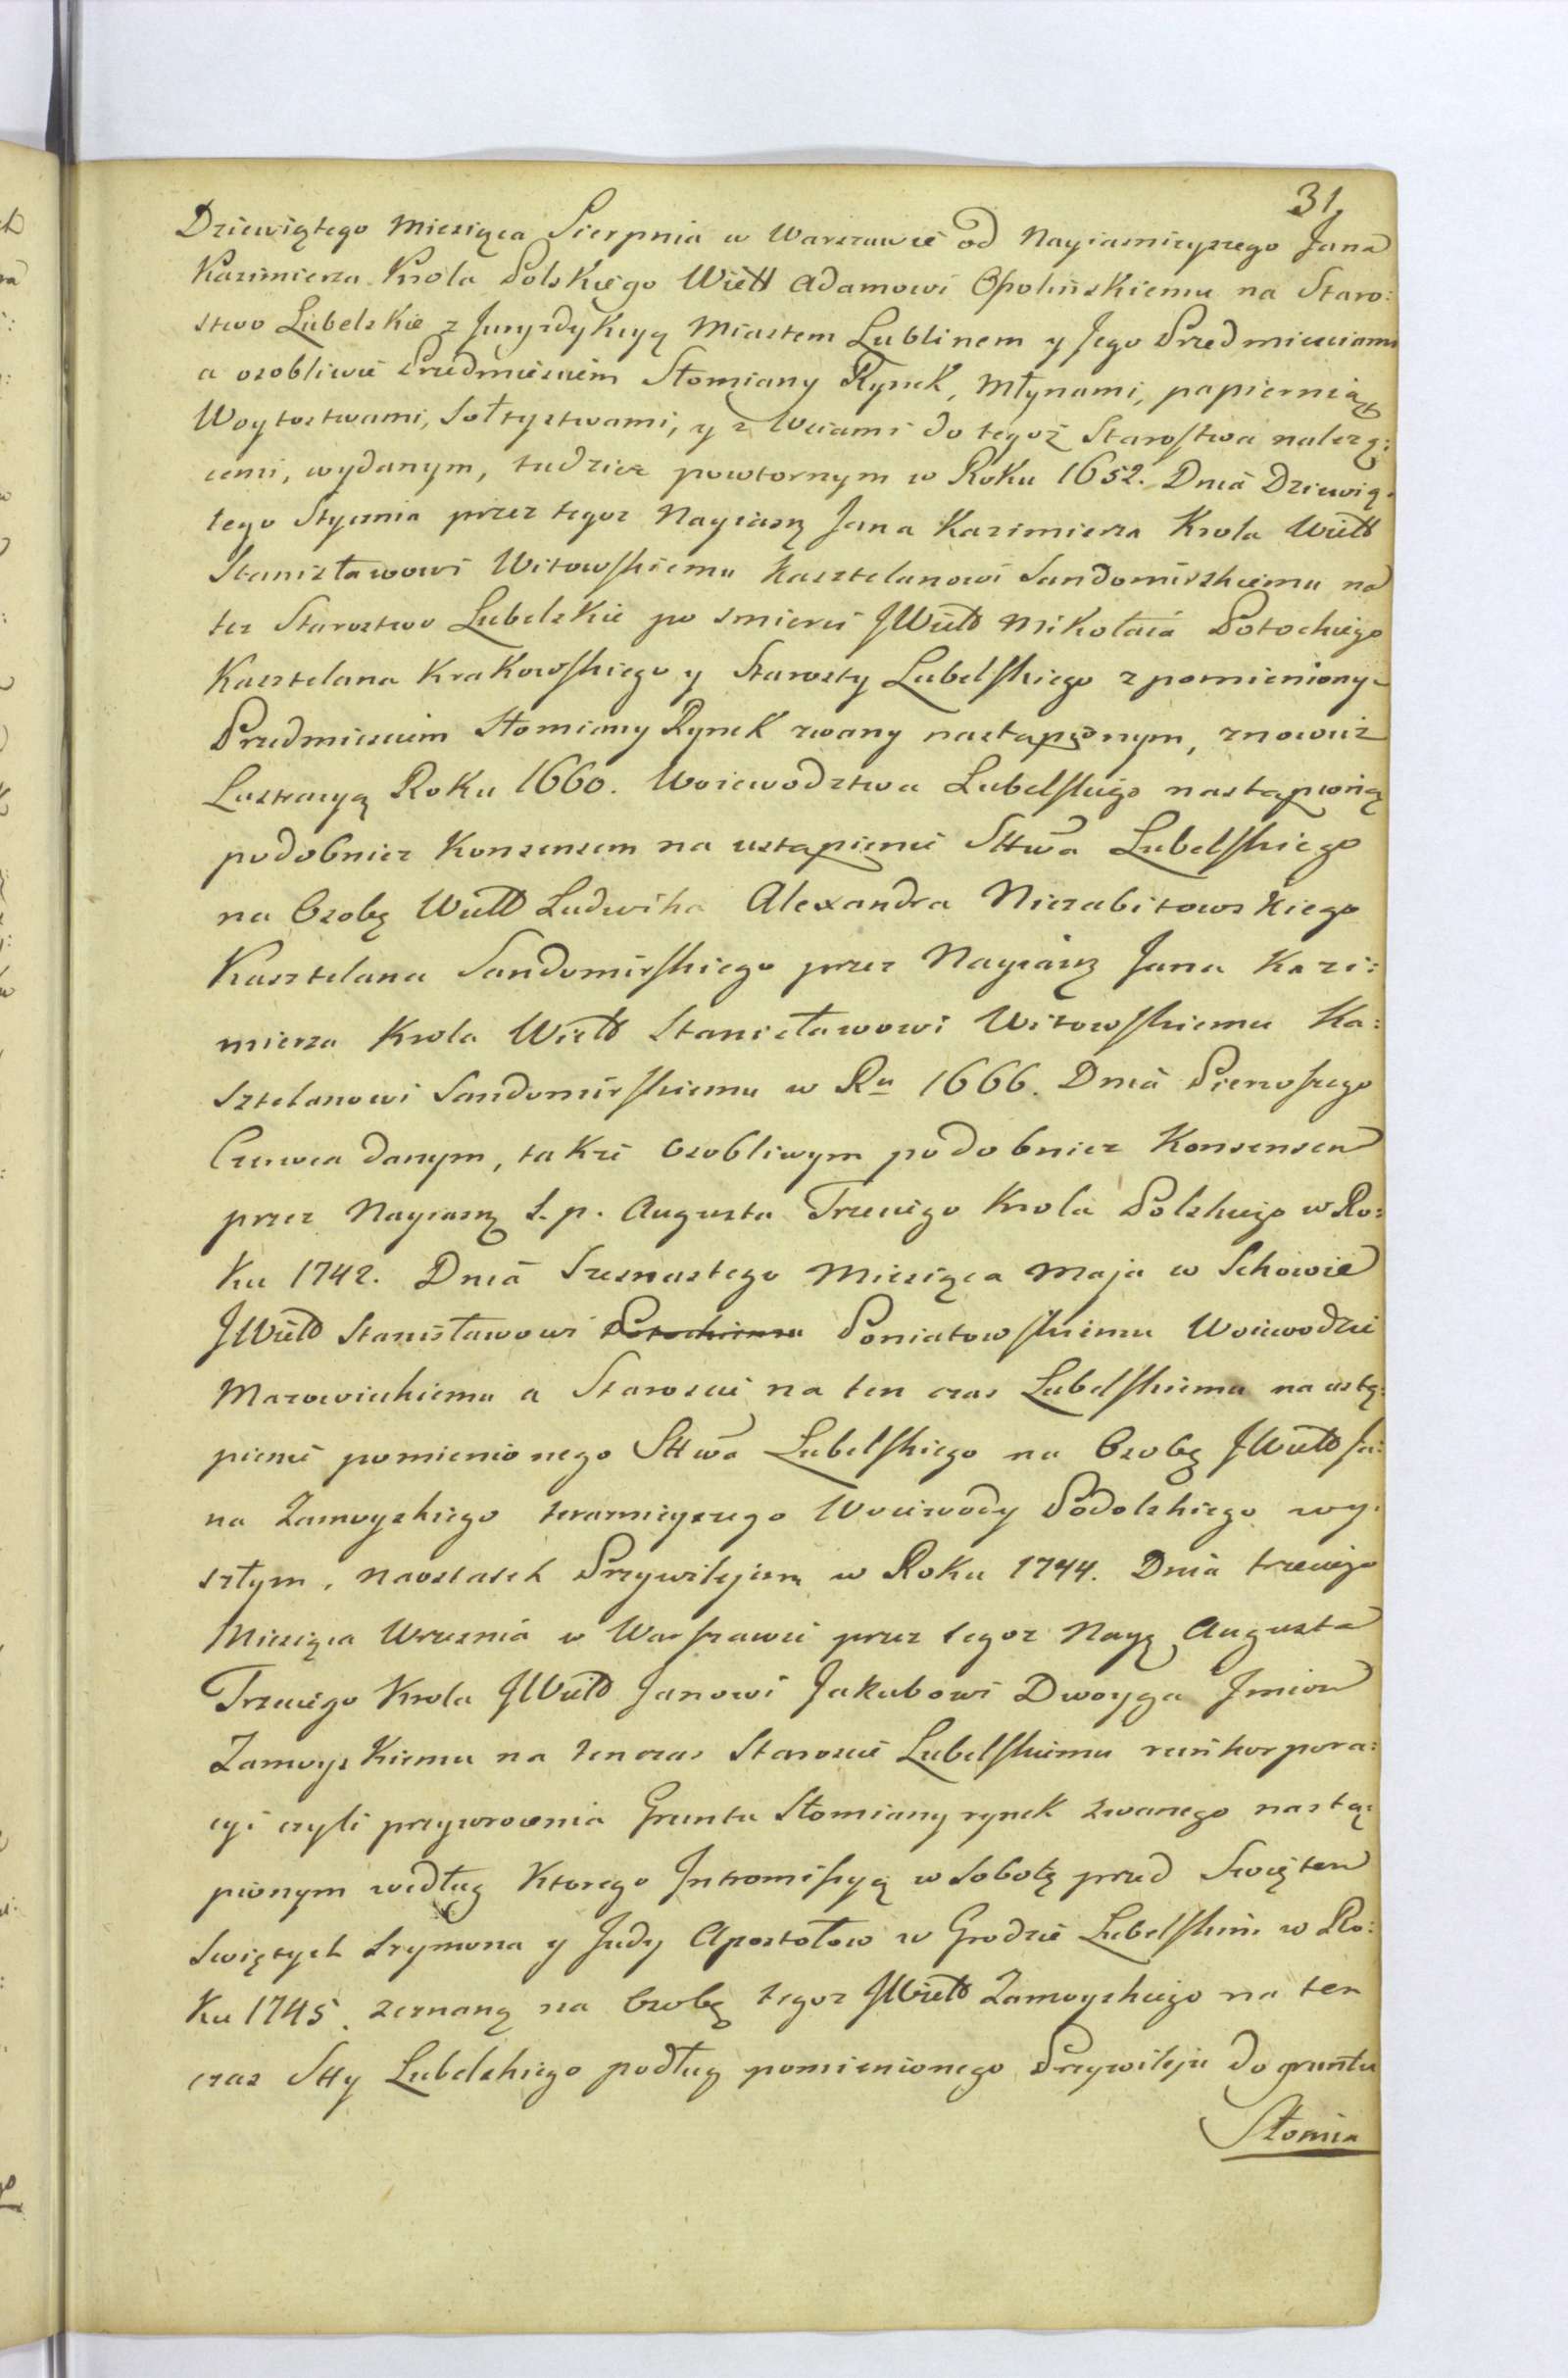 31
Dziewiątego Miesiąca Sierpnia w Warszawie od Nayiasnieyszego Jana
Kazimierza Krola Polskiego Wielł Adamowi Opolińskiemu na Staro:
stwo Lubelskie z Juryzdykcyą Miastem Lublinem y Jego Przedmiesciami
a osobliwie Przedmiesciem Słomiany Rynek, Młynami, papiernią
Woytostwami, Sołtystwami, y z Wsiami do tegoż Starostwa należą:
cemi, wydanym, tudziez powtornym w Roku 1652. Dnia Dziewią:
tego Stycznia przez tegoz Nayiasz Jana Kazimierza Krola Wielł
Stanisławowi Witowskiemu Kasztelanowi Sandomirskiemu na
tez Starostwo Lubelskie po smierci JWielł Mikołaia Potockiego
Kasztelana Krakowskiego y Starosty Lubelskiego z pomienionym
Przedmiesciem Słomiany Rynek zwany nastąpionym, znowuz
Lustracyą Roku 1660. Woiewodztwa Lubelskiego nastąpioną
podobniez Konsensem na ustąpienie Sttwa Lubelskiego
na Osobę Wielł Ludwika Alexandra Niezabitowskiego
Kasztelana Sandomirskiego przez Nayiasz Jana Kazi:
mierza Krola Wielł Stanisławowi Witowskiemu Ka:
sztelanowi Sandomirskiemu w Ru 1666. Dnia Pierwszego
Czerwca danym, takze osobliwym podobniez Konsensem
przez Nayiasz S. p. Augusta Trzeciego Krola Polskiego w Ro:
ku 1742. Dnia Szesnastego Miesiąca Maja w Schowie
JWielł Stanisławowi Potockiemu Poniatowskiemu Woiewodzie
Mazowieckiemu a Staroscie na ten czas Lubelskiemu na ustą:
pienie pomienionego Sttwa Lubelskiego na Osobę JWielł Ja:
na Zamoyskiego teraznieyszego Woiewody Podolskiego wy:
szłym, naostatek Przywilejem w Roku 1744. Dnia trzeciego
Miesiąca Wrzesnia w Warszawie przez tegoz Nayę Augusta
Trzeciego Krola JWielł Janowi Jakubowi Dwoyga Jmion
Zamoyskiemu na tenczas Staroscie Lubelskiemu reinkorpora:
cyi czyli przywrocenia Gruntu Słomiany rynek zwanego nastą:
pionym według Ktorego Intromissyą w Sobotę przed Swiętem
Swiętych Szymona y Judy Apostołow w Grodzie Lubelskim w Ro:
Ku 1745. zeznaną na Osobę tegoz JWielł Zamoyskiego na ten
czas Stty Lubelskiego podług pomienionego Przywileju do gruntu
Słomia